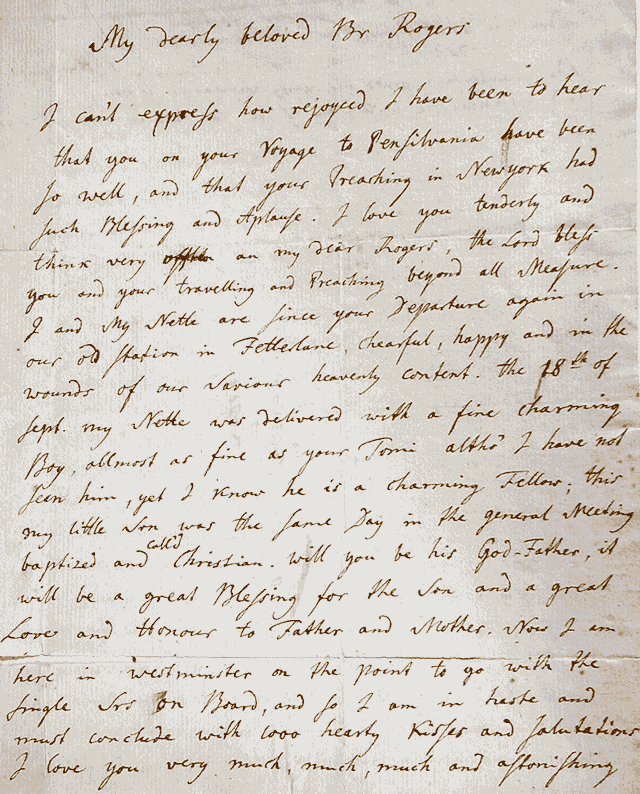 My dearly beloved Br Rogers
I can't express how rejoyced I have been to hear
that you on your Voyage to Pensilvania have been
so well, and that your Preaching in Newyork had
such Blessing and Aplause. I love you tenderly and
think very on my dear Rogers, the Lord bless
you and your travelling and Preaching beyond all Measure.
I and My Nette are since your Departure again in
our old station in Fetterlane, chearful, happy and in the
wounds of our Saviour heavenly content. the 18th of
sept. my Nette was delivered with a fine charming
Boy, allmost as fine as your Tomi altho' I have not
seen him, yet I know he is a charming Fellow; this
my little Son was the same Day in the general Meeting
baptized and call'd Christian. will you be his God-Father, it
will be a great Blessing for the Son and a great
Love and Honour to Father and Mother. Now I am
here in westminster on the point to go with the
single Srs on Board, and so I am in haste and
must conclude with 1000 hearty Kisses and salutations
I love you very much, much, much and astonishing